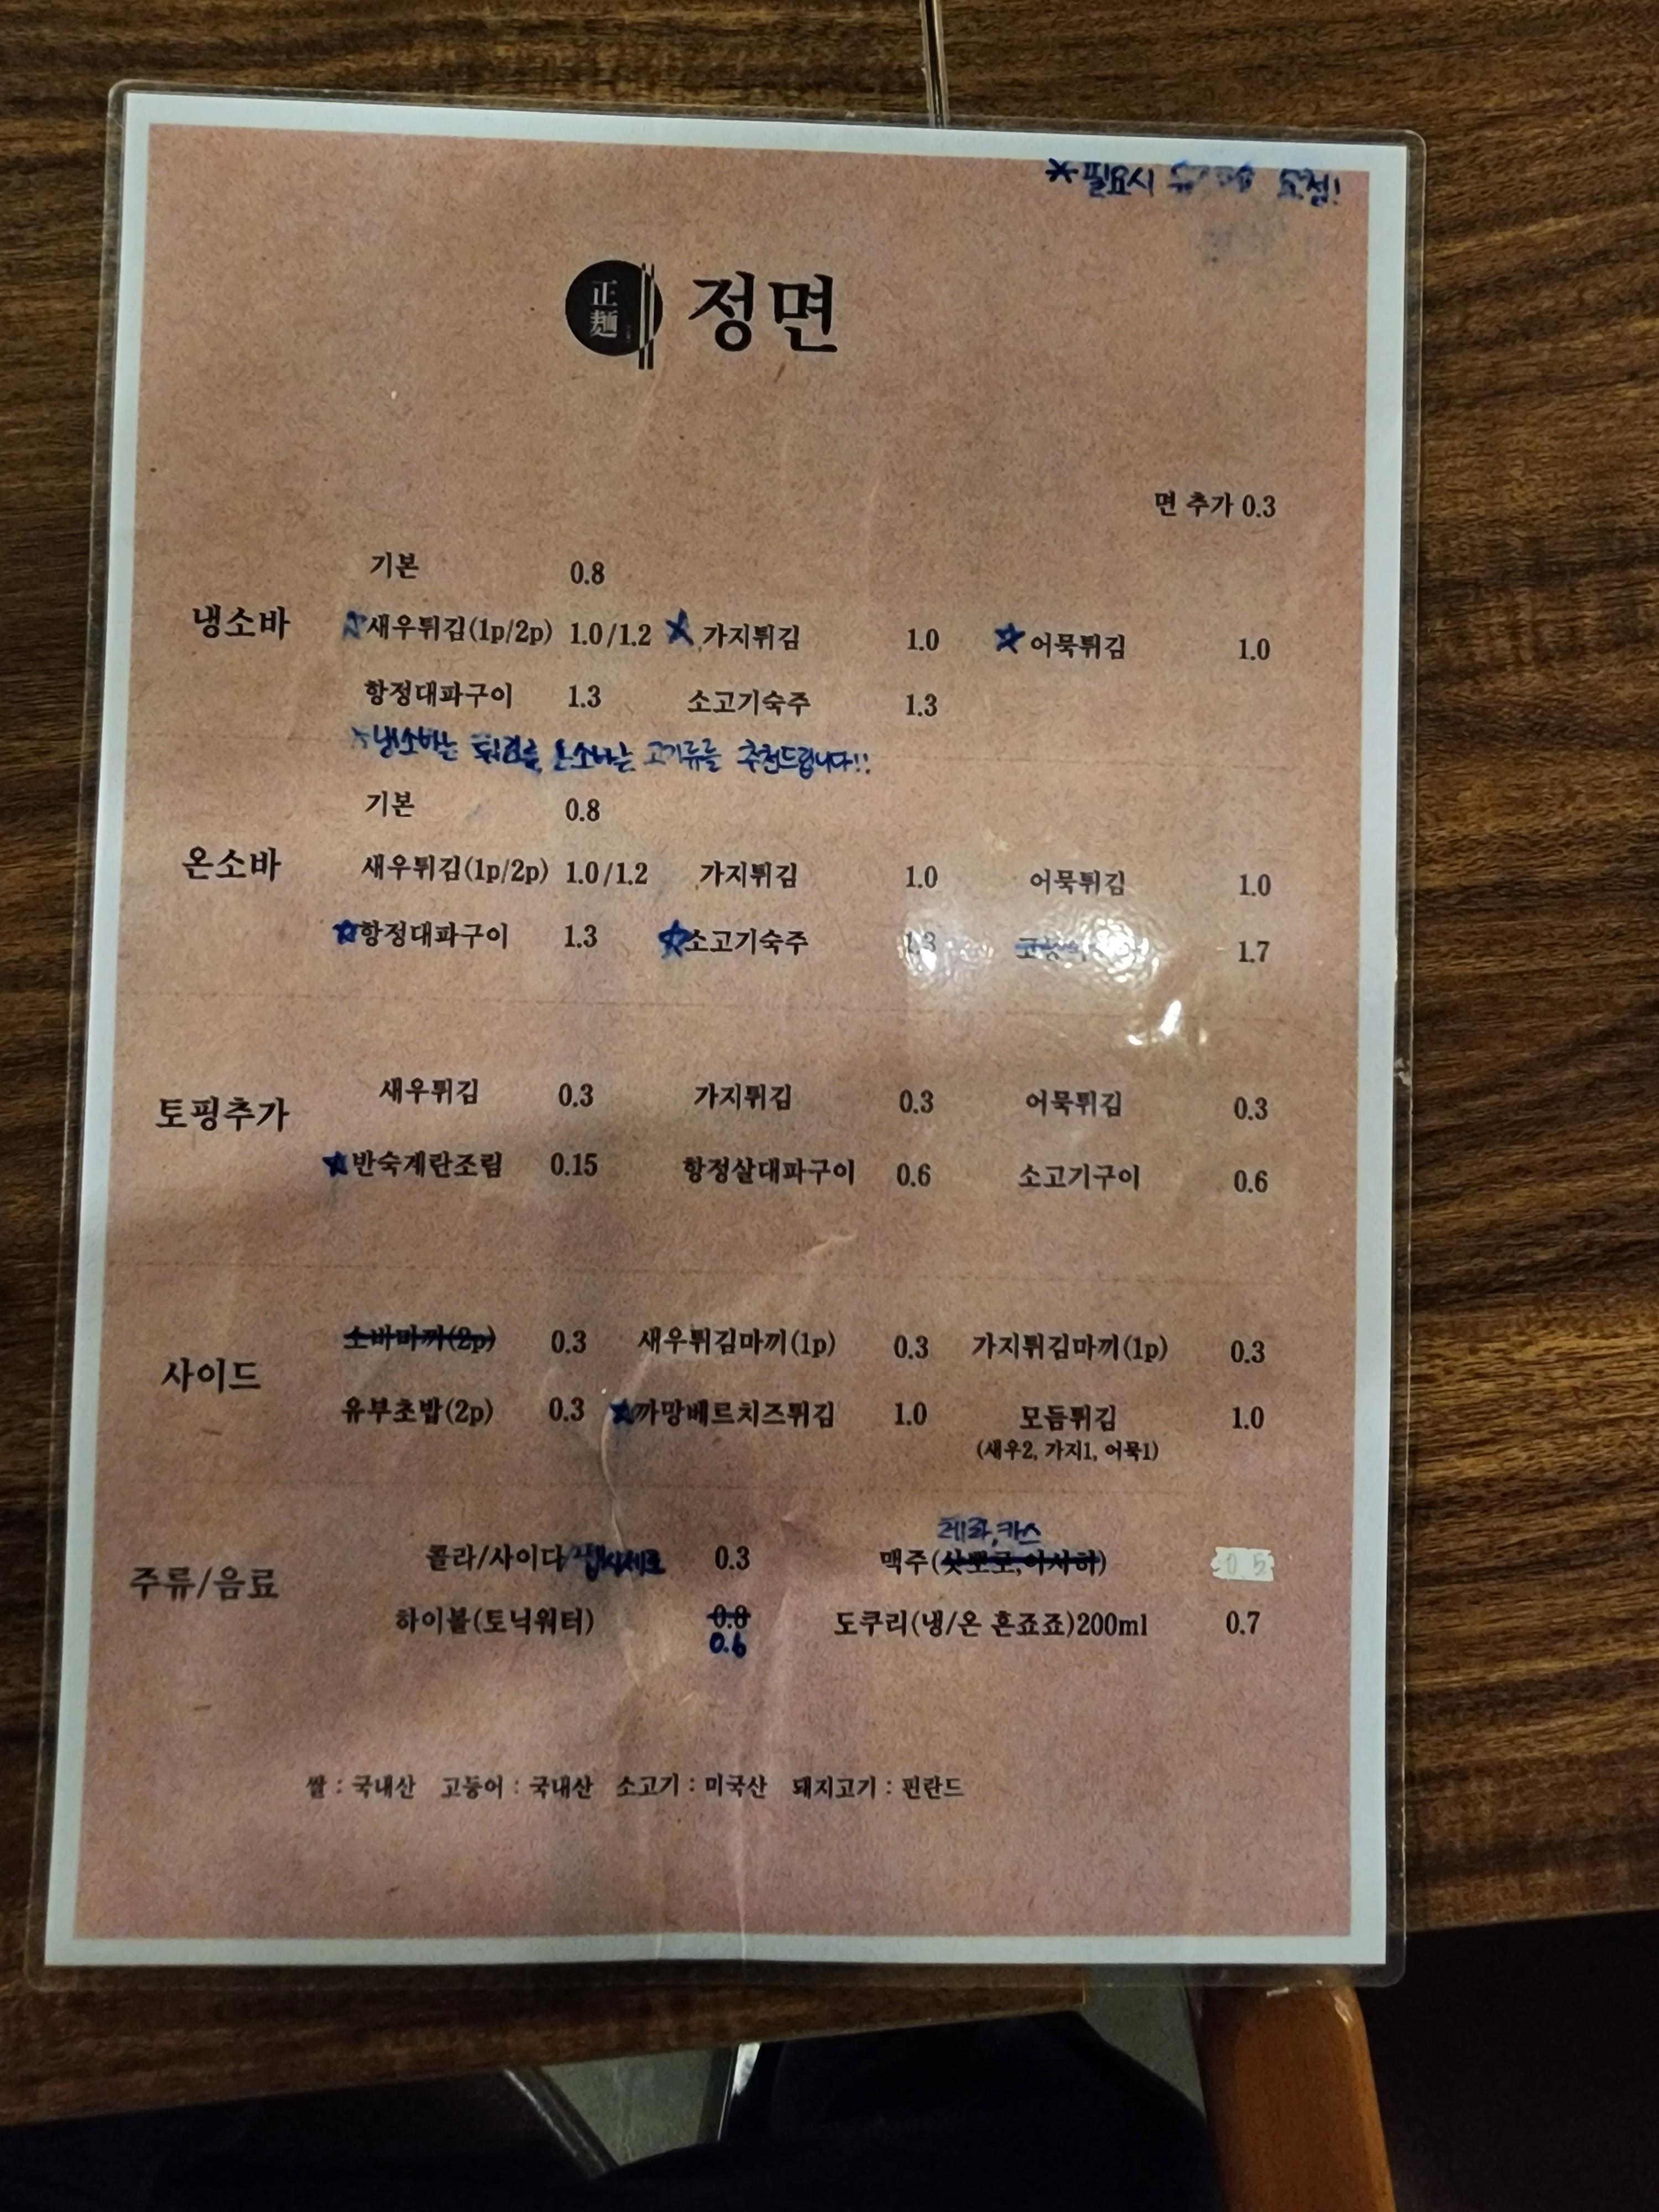 *필요시 요청!
正麵 정면
면 추가 0.3
기본 0.8
냉소바 ☆새우튀김(1p/2p) 1.0/1.2 ☆가지튀김 1.0 ☆어묵튀김 1.0
항정대파구이 1.3 소고기숙주 1.3
*냉소바는 튀김을, 온소바는 고기류를 추천드립니다!!
기본 0.8
온소바 새우튀김(1p/2p) 1.0/1.2 가지튀김 1.0 어묵튀김 1.0
☆항정대파구이 1.3 ☆소고기숙주 1.3 1.7
토핑추가 새우튀김 0.3 가지튀김 0.3 어묵튀김 0.3
★반숙계란조림 0.15 항정살대파구이 0.6 소고기구이 0.6
사이드 소바마끼(2p) 0.3 새우튀김마끼(1p) 0.3 가지튀김마끼(1p) 0.3
유부초밥(2p) 0.3 ★까망베르치즈튀김 1.0 모듬튀김 1.0
(새우2, 가지1, 어묵1)
테라,카스
주류/음료 콜라/사이다 0.3 맥주(삿뽀로,아사히) 0.5
하이볼(토닉워터) 0.8 도쿠리(냉/온 혼죠죠)200ml 0.7
0.6
쌀 : 국내산 고등어 : 국내산 소고기 : 미국산 돼지고기 : 핀란드